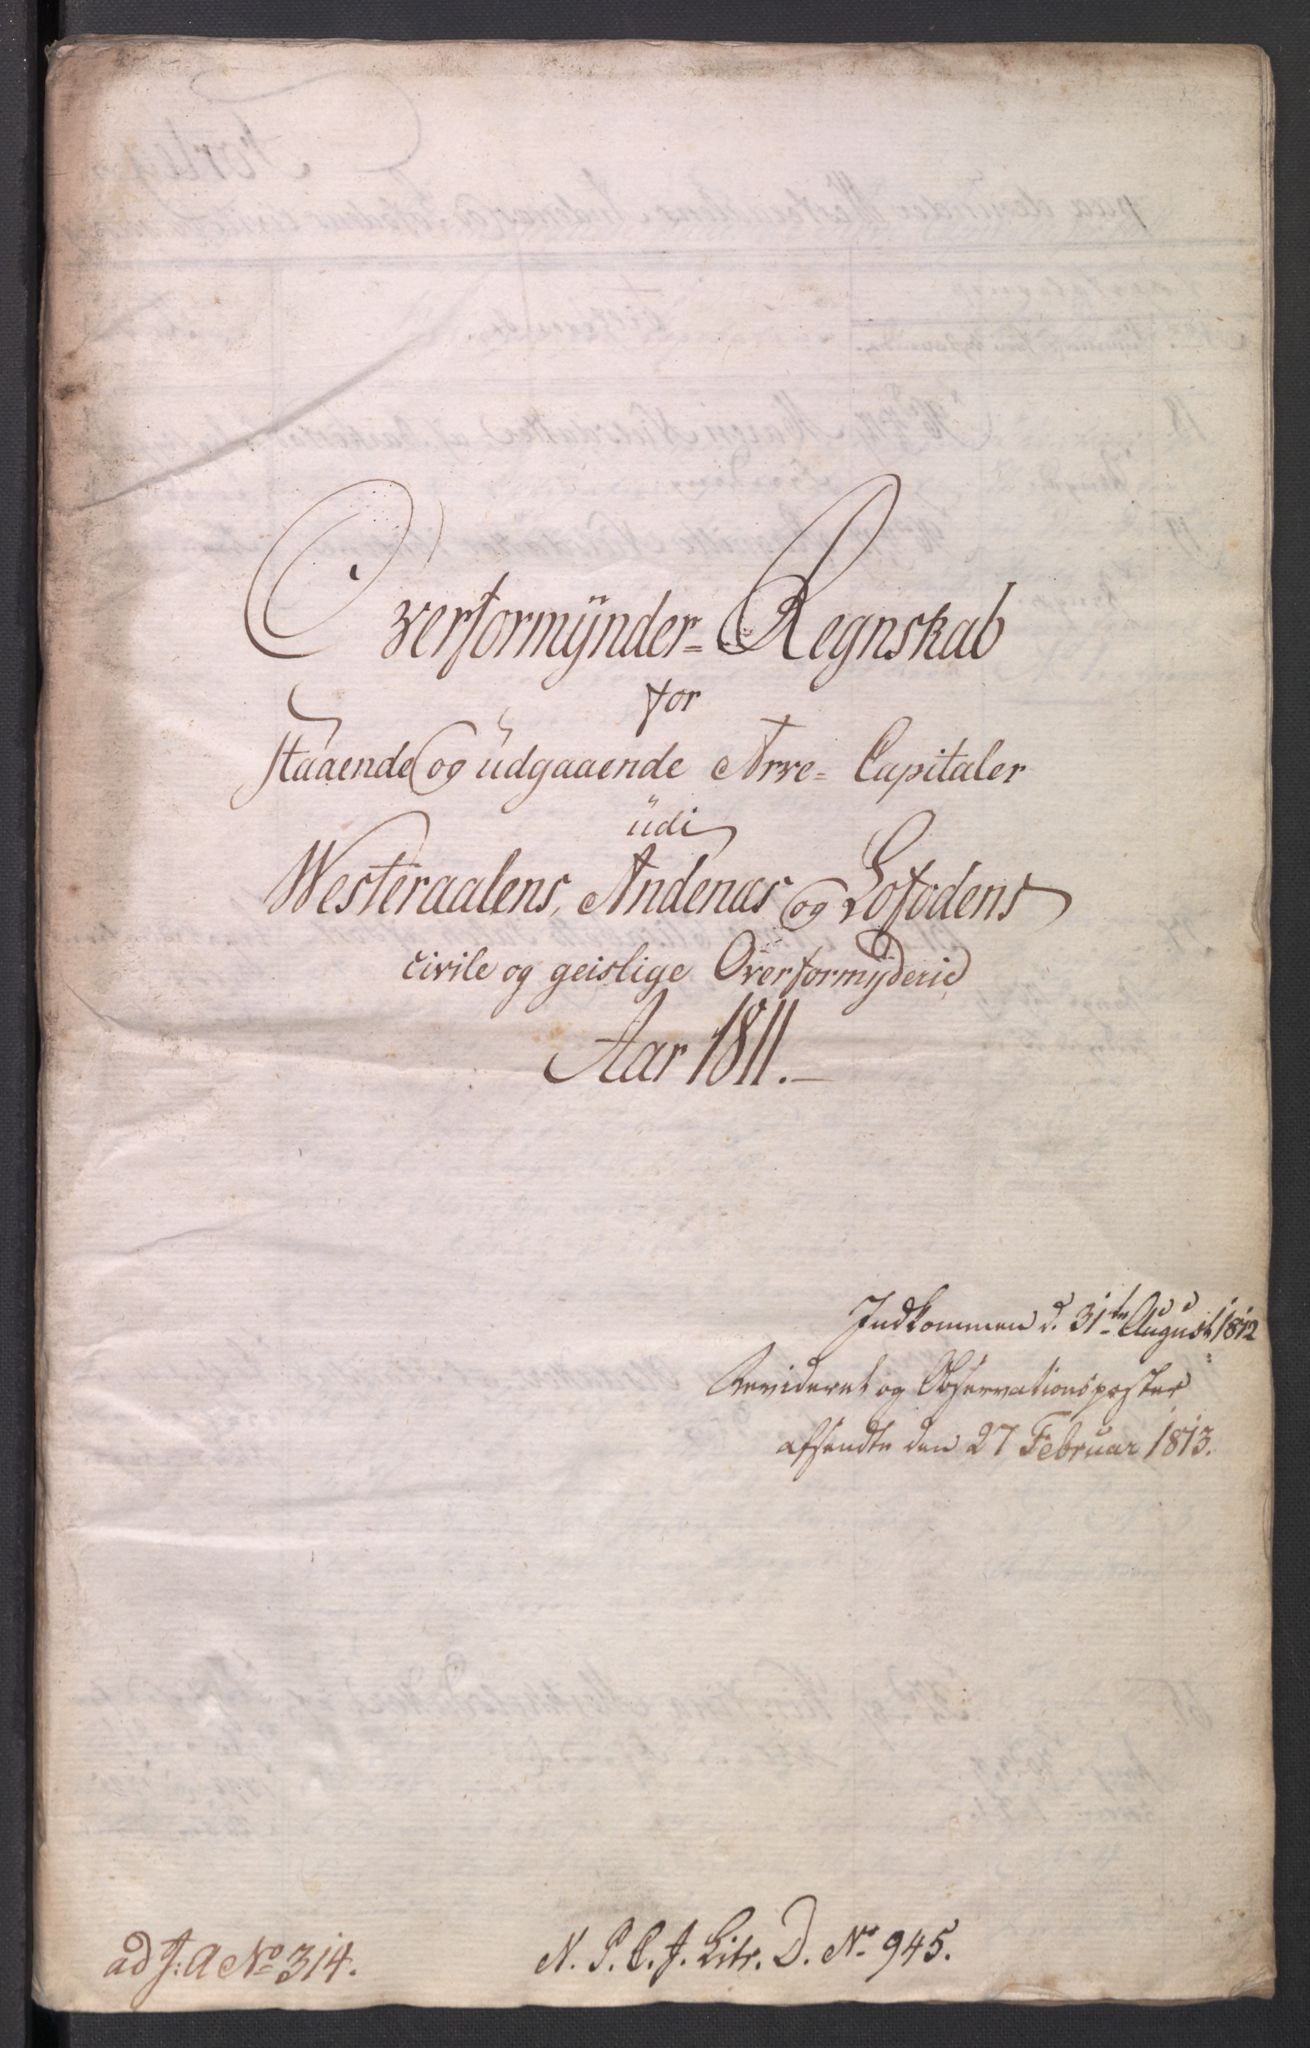 Overformÿnder- Regnskab
for
staaende og udgaaende Arve- Capitaler
udi
Westeraalens, Andenæs og Lofodens
civile og geislige Overformÿderie
Aar 1811.
Indkommen d. 31te August 1812
Revideret og Observationsposter
afsendte den 27 Februar 1813.
ad J: A No 314.
N. P. C. J. Litr. D. No 945.